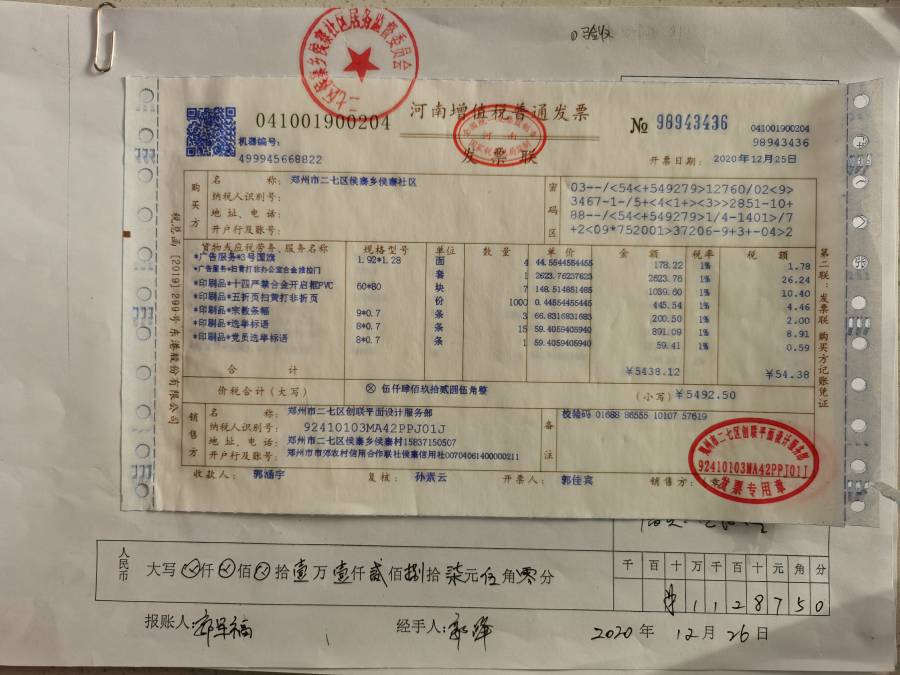 验收
二七区侯寨乡侯寨社区居务监督委员会
041001900204
河南增值税普通发票
№ 98943436
041001900204
98943436
机器编号:
499945668822
河南
发票联
开票日期: 2020年12月25日
税总函[2019]299号
购买方
名称: 郑州市二七区侯寨乡侯寨社区
纳税人识别号:
地址、电话:
开户行及账号:
密码区
03--/<54<+549279>12760/02<9>
3467-1-/5+<4<1+><3>>2851-10+
88--/<54<+549279>1/4-1401>/7
+2<09*752001>37206-9+3+-04>2
货物或应税劳务、服务名称 规格型号 单位 数量 单价 金额 税率 税额
*广告服务*3号国旗 1.92*1.28 面 4 44.5544554455 178.22 1% 1.78
*广告服务*扫黄打非办公室合金推拉门 套 1 2623.76237623 2623.76 1% 26.24
*印刷品*十四严禁合金开启框PVC 60*80 块 7 148.514851485 1039.60 1% 10.40
*印刷品*五折页扫黄打非折页 份 1000 0.44554455445 445.54 1% 4.46
*印刷品*宗教条幅 9*0.7 条 3 66.8316831683 200.50 1% 2.00
*印刷品*选举标语 8*0.7 条 15 59.4059405940 891.09 1% 8.91
*印刷品*党员选举标语 8*0.7 条 1 59.4059405940 59.41 1% 0.59
合计 ¥5438.12 ¥54.38
价税合计(大写) ⊗ 伍仟肆佰玖拾贰圆伍角整 (小写) ¥5492.50
第二联:发票联 购买方记账凭证
销售方
名称: 郑州市二七区创联平面设计服务部
纳税人识别号: 92410103MA42PPJ01J
地址、电话: 郑州市二七区侯寨乡侯寨村15837150507
开户行及账号: 郑州市市郊农村信用合作联社侯寨信用社00704061400000211
备注
校验码 01688 86555 10107 57619
收款人: 郭涵宇 复核: 孙素云 开票人: 郭佳宾 销售方:(章)
郑州市二七区创联平面设计服务部
92410103MA42PPJ01J
发票专用章
人民币
大写 仟 佰 拾壹万壹仟贰佰捌拾柒元伍角零分
千百十万千百十元角分
¥1128750
报账人: 经手人: 2020年12月26日